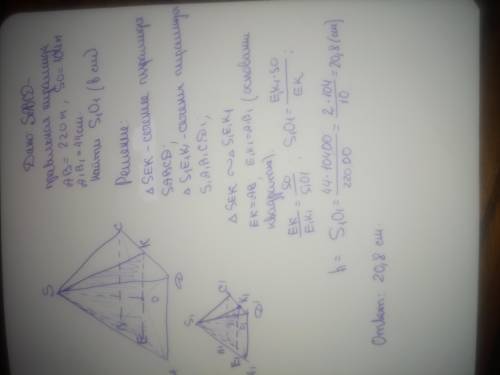 Дано: SABCD-
правильная пирамида
AB = 220м, SO = 104м
A₁B₁ = 44см
найти S₁O₁ (в см)
Решение:
△ SEK - сечение пирамиды
SABCD,
△ S₁E₁K₁ - сечение пирамиды
S₁A₁B₁C₁D₁,
△ SEK ∼ △ S₁E₁K₁
EK = AB, E₁K₁ = A₁B₁ (основания
квадраты).
EK/E₁K₁ = SO/S₁O₁; S₁O₁ = E₁K₁·SO/EK;
h = S₁O₁ = 44·10400/22000 = 2·104/10 = 20,8 (см)
Ответ: 20,8 см.
S
B
C
E
K
O
A
D
S₁
B₁
C₁
E₁
K₁
O₁
A₁
D₁